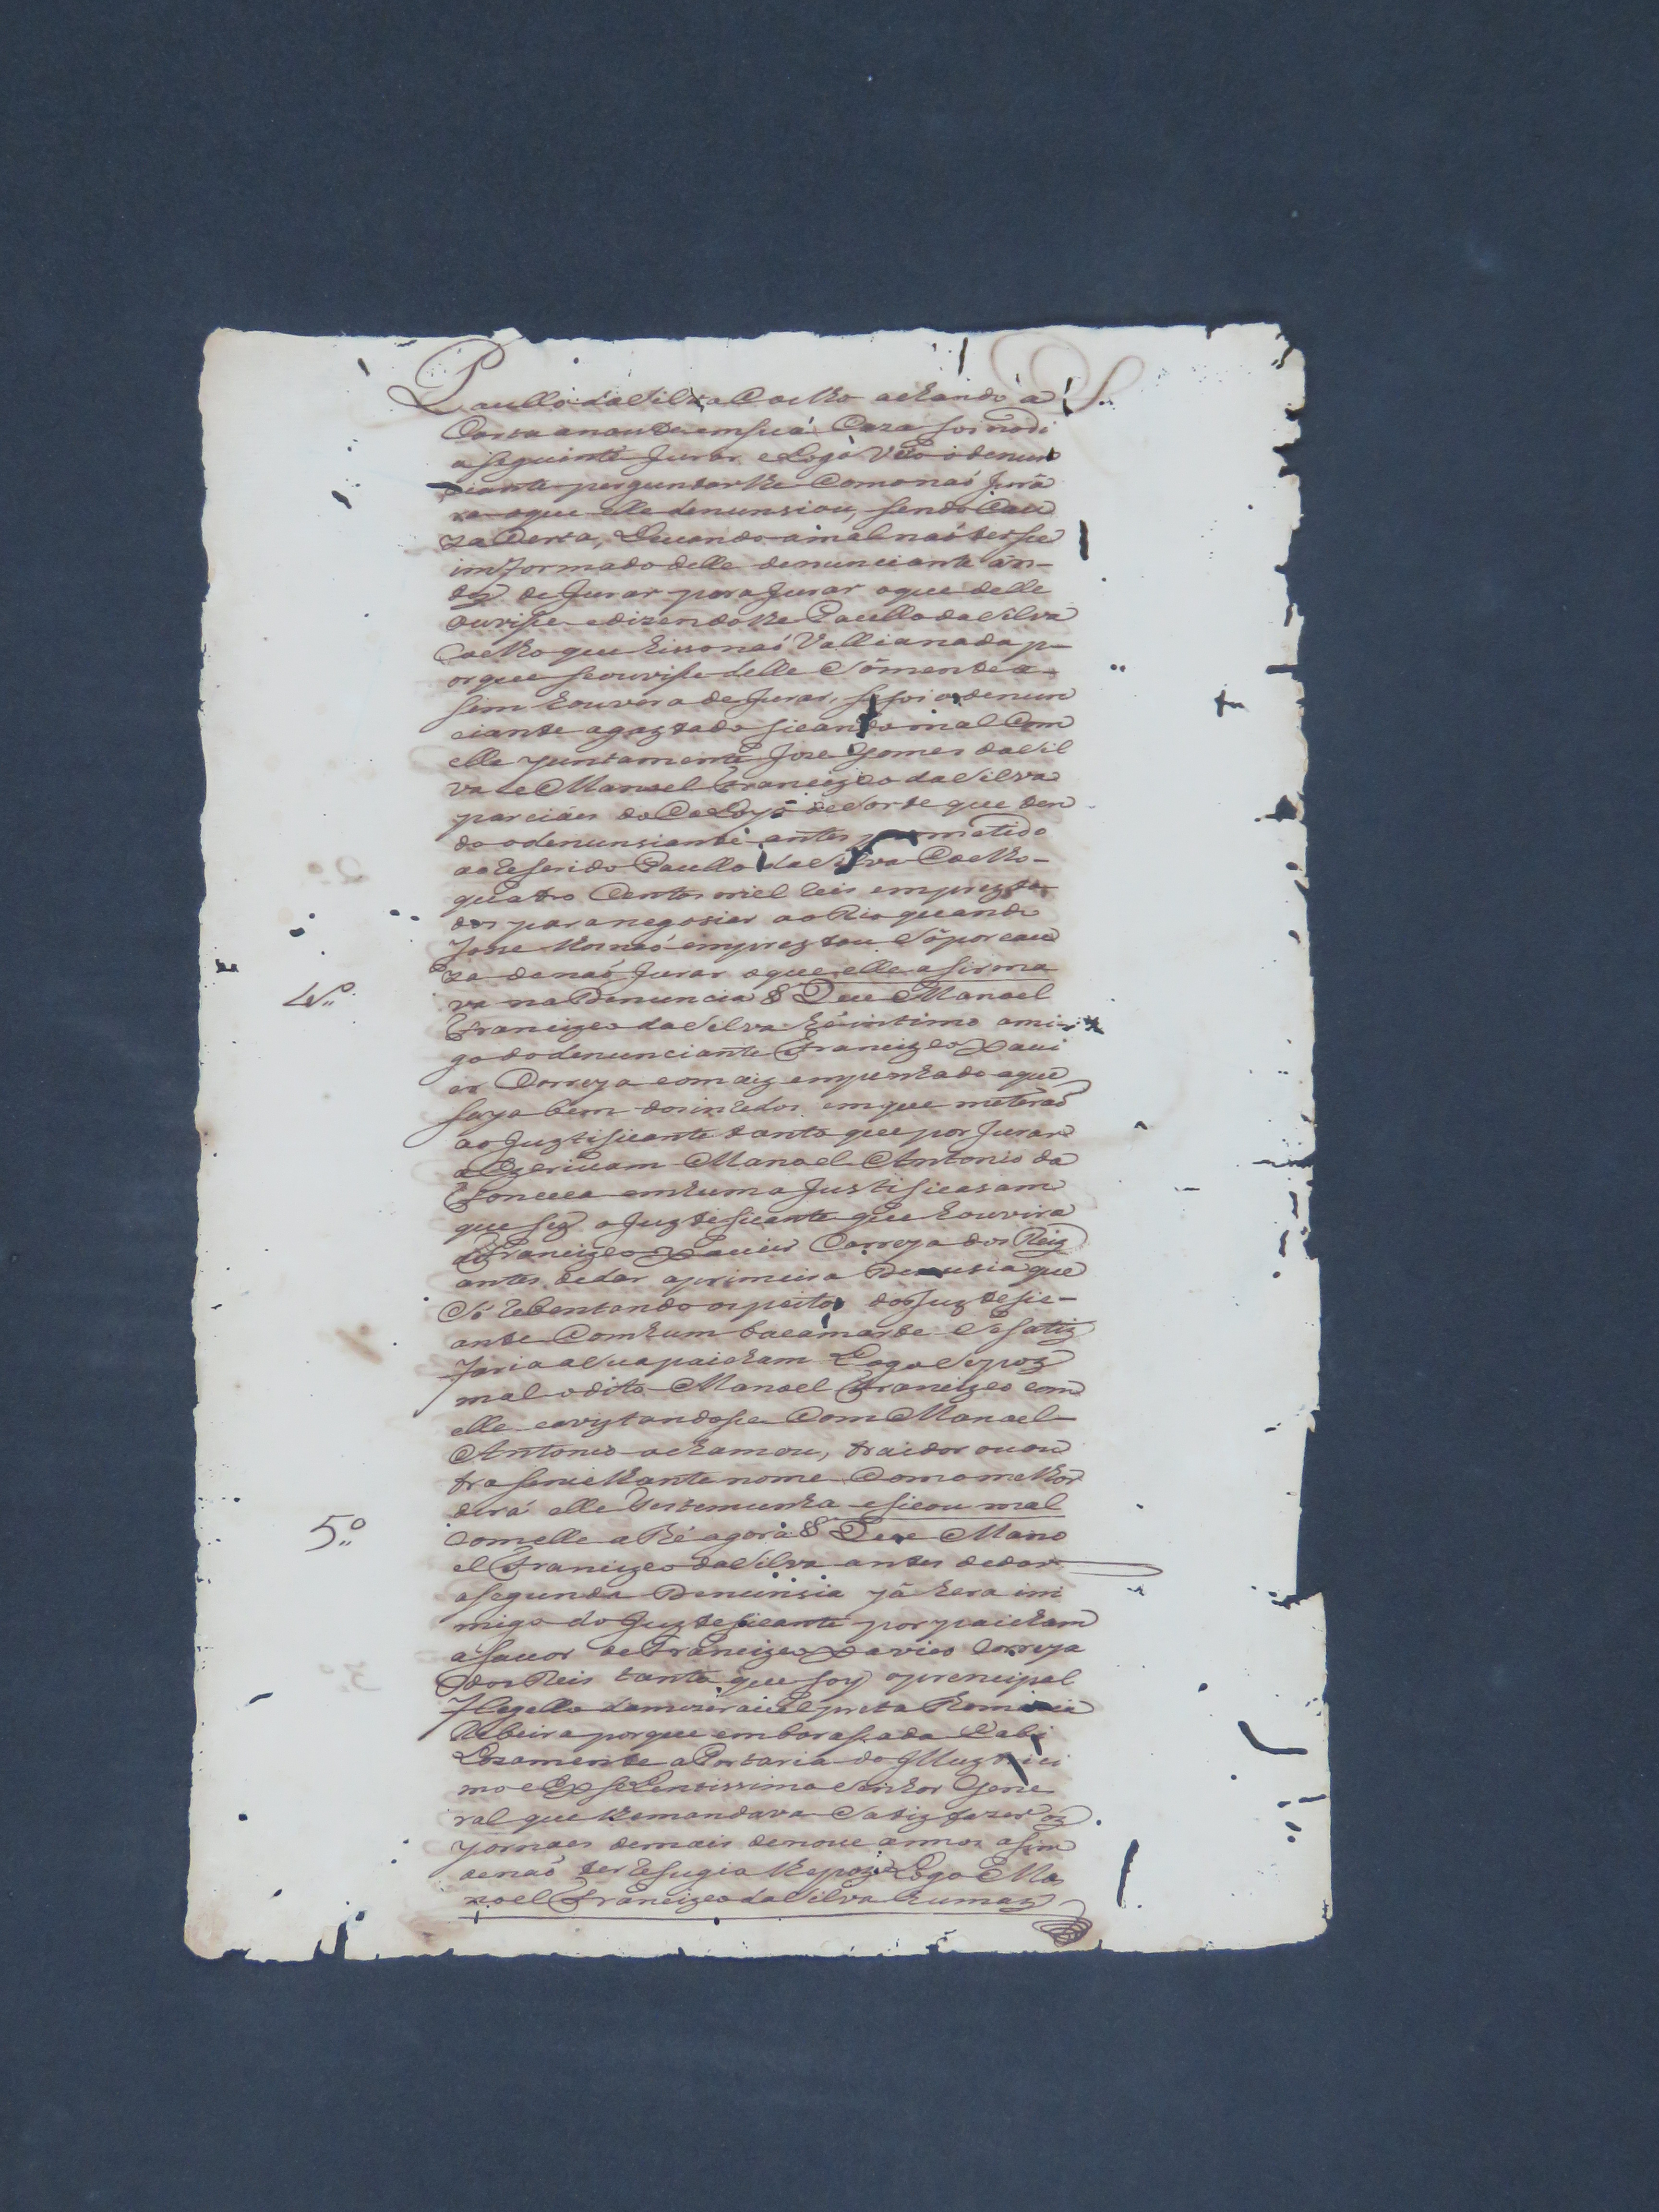 Paullo da Silva Coelho achando à
Carta anoute em suá Caza foi nodi
a seguinte Jurar e Logo Veio o denun
ciante perguntarlhe Como naó Jurá
ra oque elle denunsiou, sendo Cau
za Certa, Levando amal naó terse
imformado delle denunciante an-
tes de Jurar para Jurar oque delle
ouvise edizendolhe Paullo da Silva
Coelho que hisso naó Vallia nada p-
orque se ouvise delle Sómente a-
sim houvera de Jurar, se foi o denun
ciante agaztado ficando mal Com
elle yuntamente Joze Gomes da Sil
va e Manoel Francizco da Silva
parciáes do Coloyo de Sorte que ten
do o denunsiante antes prometido
ao Referido Paullo da Silva Coelho-
quatro Centos miel Reis emprezta-
dos para negosiar ao Rio quando
Fosse lhos naó empreztou Só por cau
za de naó Jurar oque elle afirma
4º va na Denuncia & Que Manoel
Francizco da Silva hé intimo ami-
go do denunciante Francizco Xavi
er Correya e omaiz empenhado aque
saya bem dos inredos em que meteraó
ao Juztificante tanto que por Jurar
o Ezcrivam Manoel Antonio da
Fonceca em huma Justificasam
que fez o Juztificante que houvira
de Francizco Xavier Correya dos Reiz
antes de dar aprimeira Denunsia que
Só Rebentando os peitos do Juztefic-
ante Com hum bacamarte Se satiz
faria a Sua paicham Logo Se poz
mal o dito Manoel Francizco com
elle e avyztandose Com Manoel
Antonio o chamou, traidor ou ou
tro semelhante nome Como melhor
dirá elle testemunha e ficou mal
5º com elle a Thé agora & Que Mano
el Francizco da Silva antes de dar
a segunda Denunsia já hera ini
migo do Juzteficante por paicham
a favor de Francizco Xavier Correya
dos Reis tanto que foy o prencipal
Flagello da mizeravel preta Romana
Ribeira porque embarasada Cabi
Lozamente a Portaria do Illuztrici
mo e Exselentissimo Senhor Gene
ral que lhe mandava Satizfazer oz
Jornaes de mais de nove annos a fim
de naó ter Refugio lhe poz Logo Ma
noel Francizco da Silva humaz